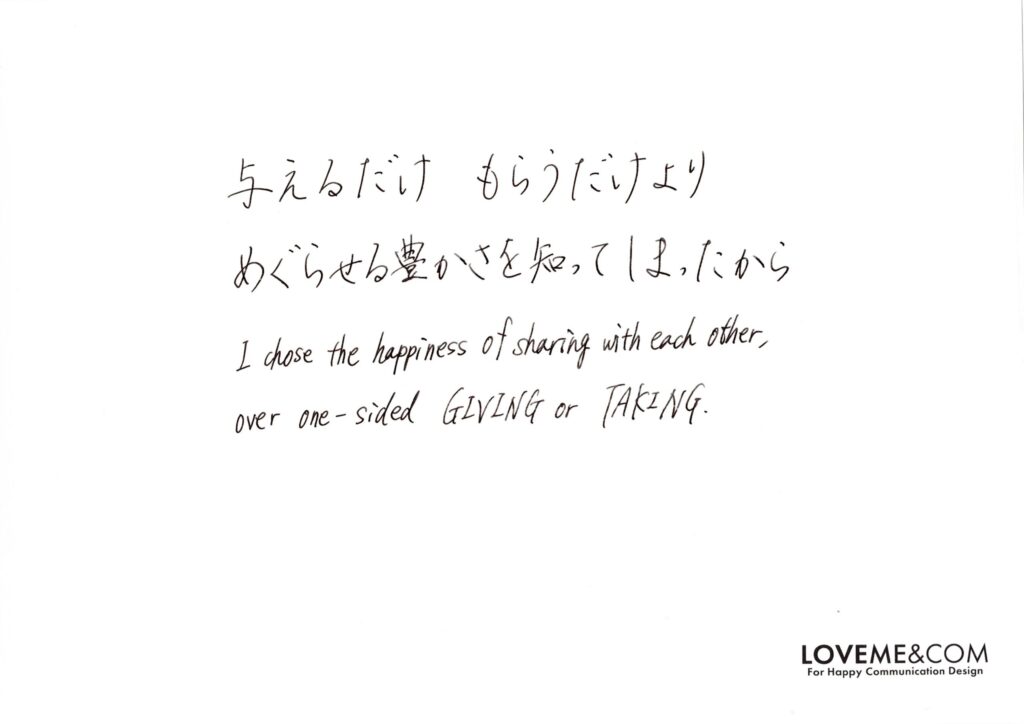 与えるだけ　もらうだけより
めぐらせる豊かさを知ってしまったから
I chose the happiness of sharing with each other,
over one-sided GIVING or TAKING.
LOVEME&COM
For Happy Communication Design